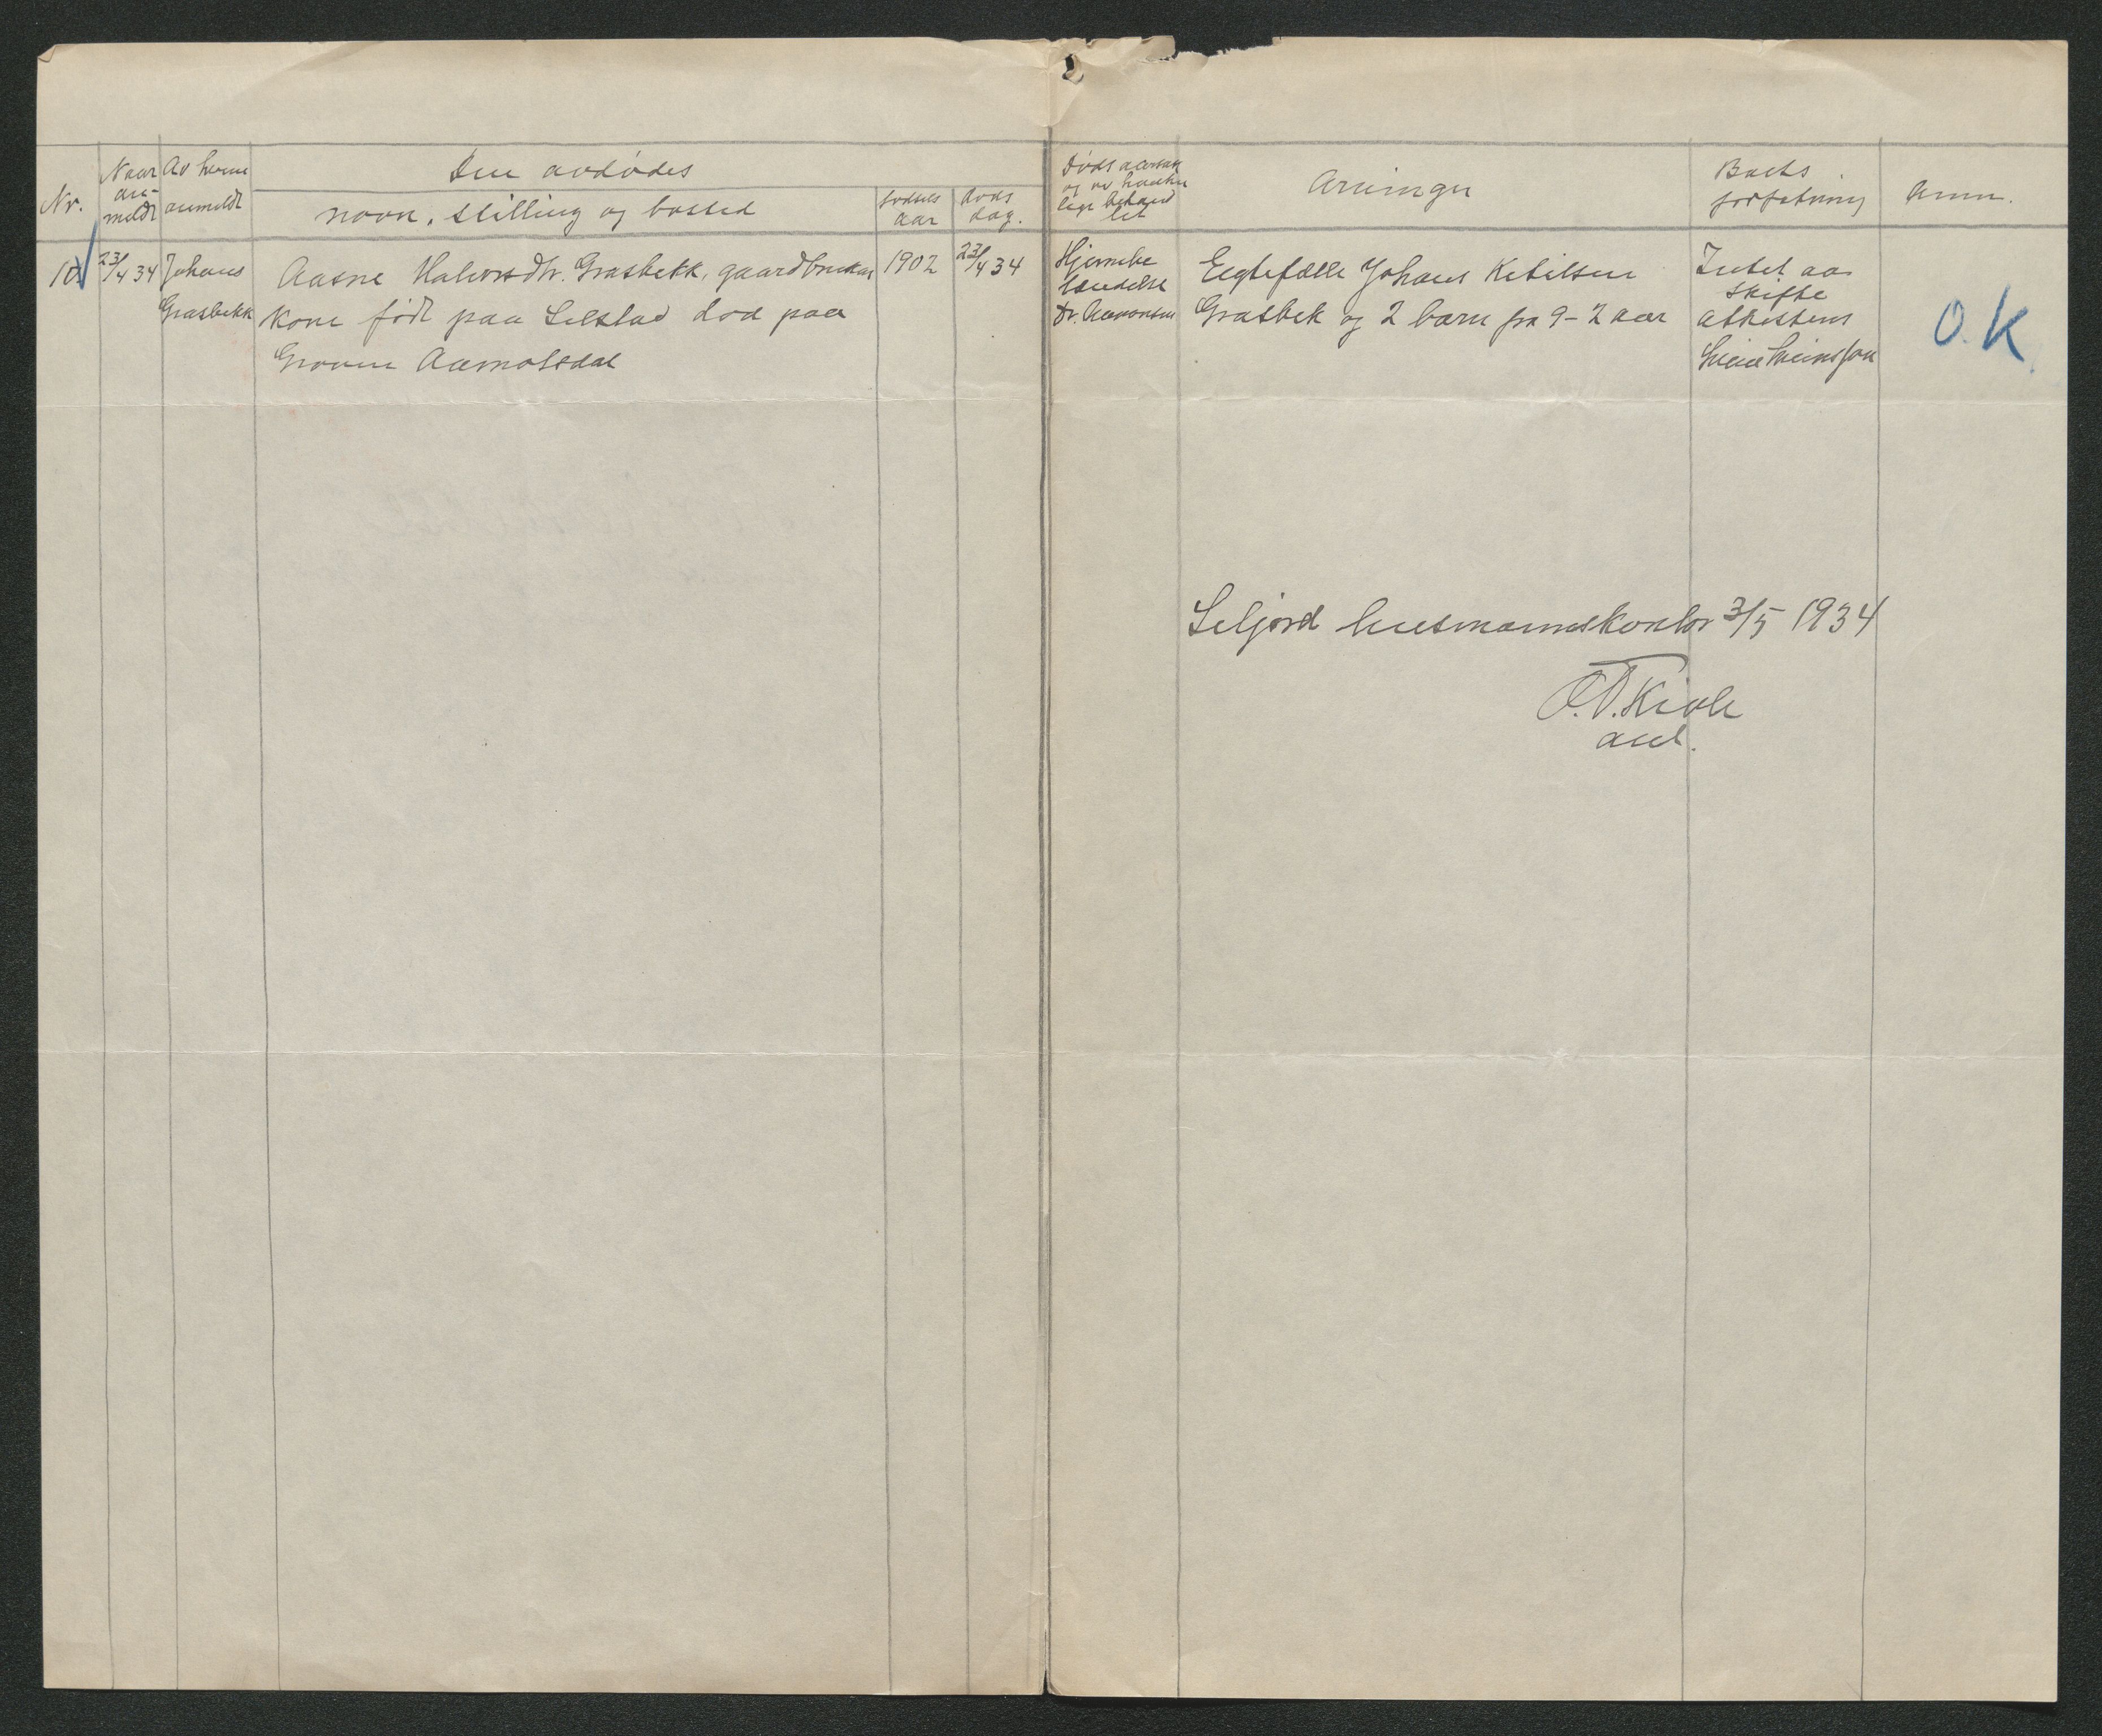 Nr.
Naar an- meldt
Av hvem anmeldt
Den avdødes
navn, stilling og bosted
fødsels aar
døds dag.
Dødsaarsak og av hvilken læge behand let
Arvinger
Boets forfatning
Anm.
10
23/4 34
Johans
Grasbekk
Aasne Halvorsdtr. Grasbekk, gaardbrukar
kone født paa Selstad død paa
Grovum Aamotsdal
1902
23/4 34
Hjernebe
tændelse
Dr. Aaronsen
Eegtefælle Johans Ketilsen
Grasbek og 2 barn fra 9-2 aar
Intet aa
skifte
attesters
O.K
Seljord lensmannskontor 3/5 1934
O.T. Kivle
aut.